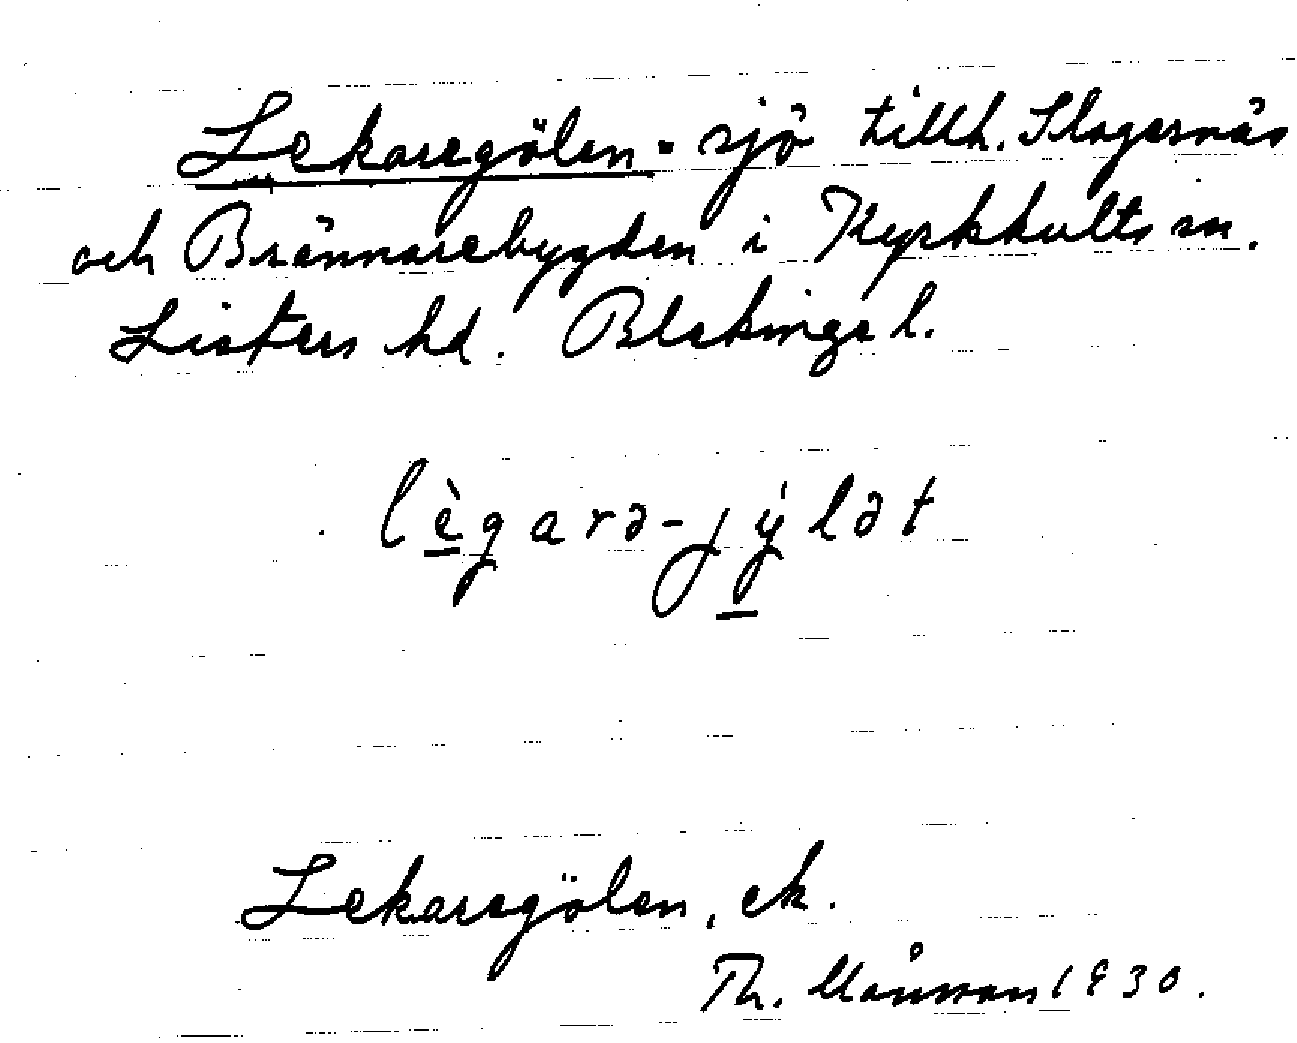 Lekaregölen - sjö tillh. Slagesnäs
och Brännarebygden i Kyrkhults sn.
Listers hd. Blekinge l.
lègarə-jýlət
Lekaregölen, ek.
Th. Månsson 1930.